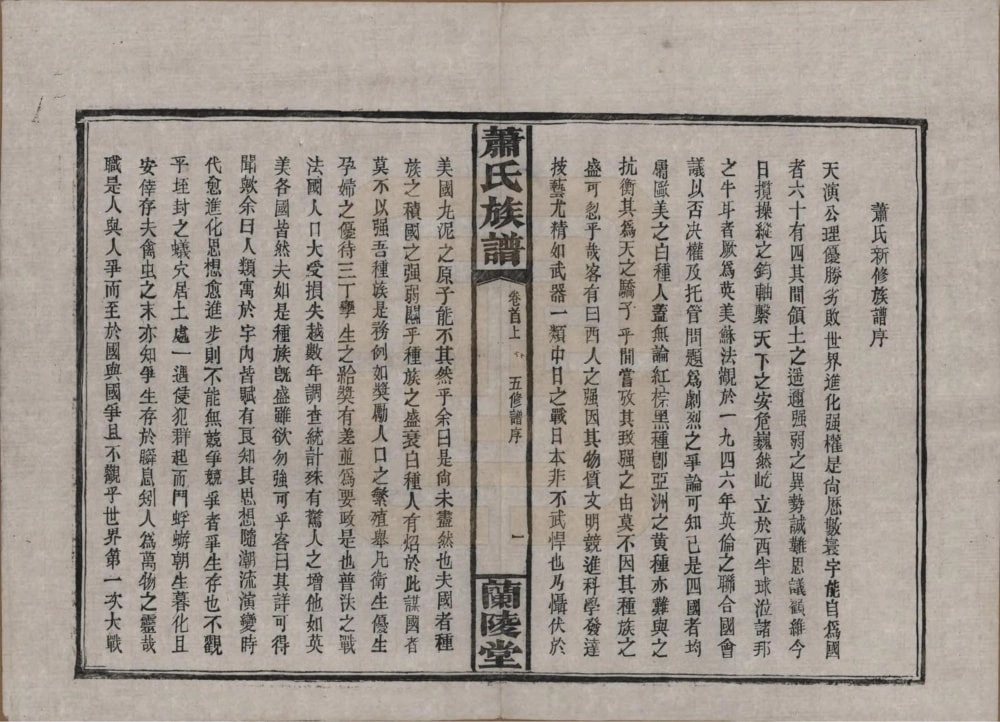 蕭氏新修族譜序
天演公理優勝劣敗世界進化强權是尙歷數寰宇能自爲國
者六十有四其間領土之遥邇强弱之異勢誠難思議顧維今
日攬操縱之鈞軸繫天下之安危巍然屹立於西半球涖諸邦
之牛耳者厥爲英美蘇法觀於一九四六年英倫之聯合國會
議以否决權及托管問題爲劇烈之爭論可知已是四國者均
屬歐美之白種人蓋無論紅棕黑種卽亞洲之黃種亦難與之
抗衡其爲天之驕子乎間嘗攷其致强之由莫不因其種族之
盛可忽乎哉客有曰西人之强因其物質文明競進科學發達
技藝尤精如武器一類中日之戰日本非不武悍也乃懾伏於
蕭氏族譜
卷首上
五修譜序
一
蘭陵堂
美國九泥之原子能不其然乎余曰是尙未盡然也夫國者種
族之積國之强弱關乎種族之盛衰白種人有炤於此謀國者
莫不以强吾種族是務例如獎勵人口之繁殖舉凡衛生優生
孕婦之優待三丁孿生之給獎有差並爲要政是也普法之戰
法國人口大受損失越數年調查統計殊有驚人之增他如英
美各國皆然夫如是種族旣盛雖欲勿强可乎客曰其詳可得
聞歟余曰人類寓於宇內皆賦有良知其思想隨潮流演變時
代愈進化思想愈進步則不能無競爭競爭者爭生存也不觀
乎垤封之蟻穴居土處一遇使犯群起而鬥蜉蝣朝生暮化且
安倖存夫禽虫之末亦知爭生存於瞬息矧人爲萬物之靈哉
職是人與人爭而至於國與國爭且不觀乎世界第一次大戰